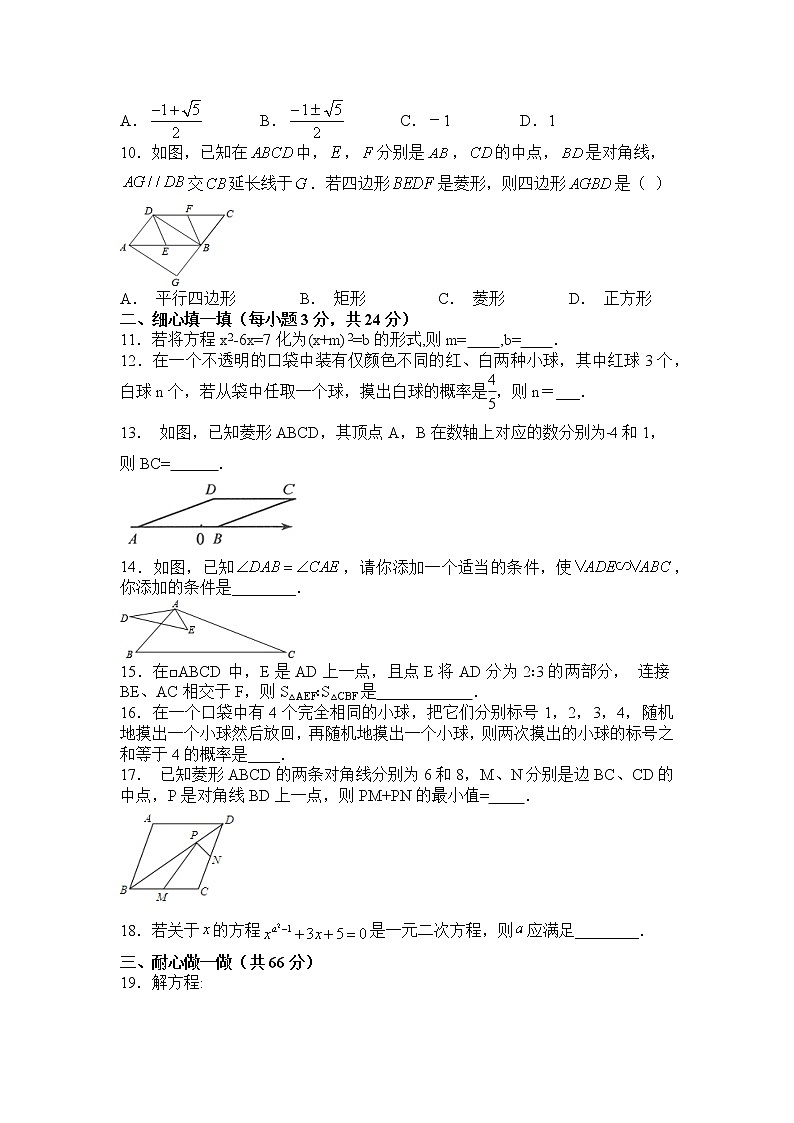 A．(−1+√5)/2 B．(−1±√5)/2 C．－1 D．1
10．如图，已知在ABCD中，E，F分别是AB，CD的中点，BD是对角线，
AG//DB交CB延长线于G．若四边形BEDF是菱形，则四边形AGBD是（ ）
D F C
A E B
G
A． 平行四边形 B． 矩形 C． 菱形 D． 正方形
二、细心填一填（每小题3分，共24分）
11．若将方程x²-6x=7化为(x+m)²=b的形式,则m=____,b=____．
12．在一个不透明的口袋中装有仅颜色不同的红、白两种小球，其中红球3个，
白球n个，若从袋中任取一个球，摸出白球的概率是4/5，则n＝___．
13． 如图，已知菱形ABCD，其顶点A，B在数轴上对应的数分别为-4和1，
则BC=______．
D C
A 0 B
14．如图，已知∠DAB=∠CAE，请你添加一个适当的条件，使VADE∽VABC，
你添加的条件是________．
A
D
E
B C
15．在□ABCD中，E是AD上一点，且点E将AD分为2:3的两部分， 连接
BE、AC相交于F，则S△AEF:S△CBF是____________．
16．在一个口袋中有4个完全相同的小球，把它们分别标号1，2，3，4，随机
地摸出一个小球然后放回，再随机地摸出一个小球，则两次摸出的小球的标号之
和等于4的概率是____．
17． 已知菱形ABCD的两条对角线分别为6和8，M、N分别是边BC、CD的
中点，P是对角线BD上一点，则PM+PN的最小值=____．
A D
P
N
B M C
18．若关于x的方程x^(a²−1)+3x+5=0是一元二次方程，则a应满足________．
三、耐心做一做（共66分）
19．解方程: